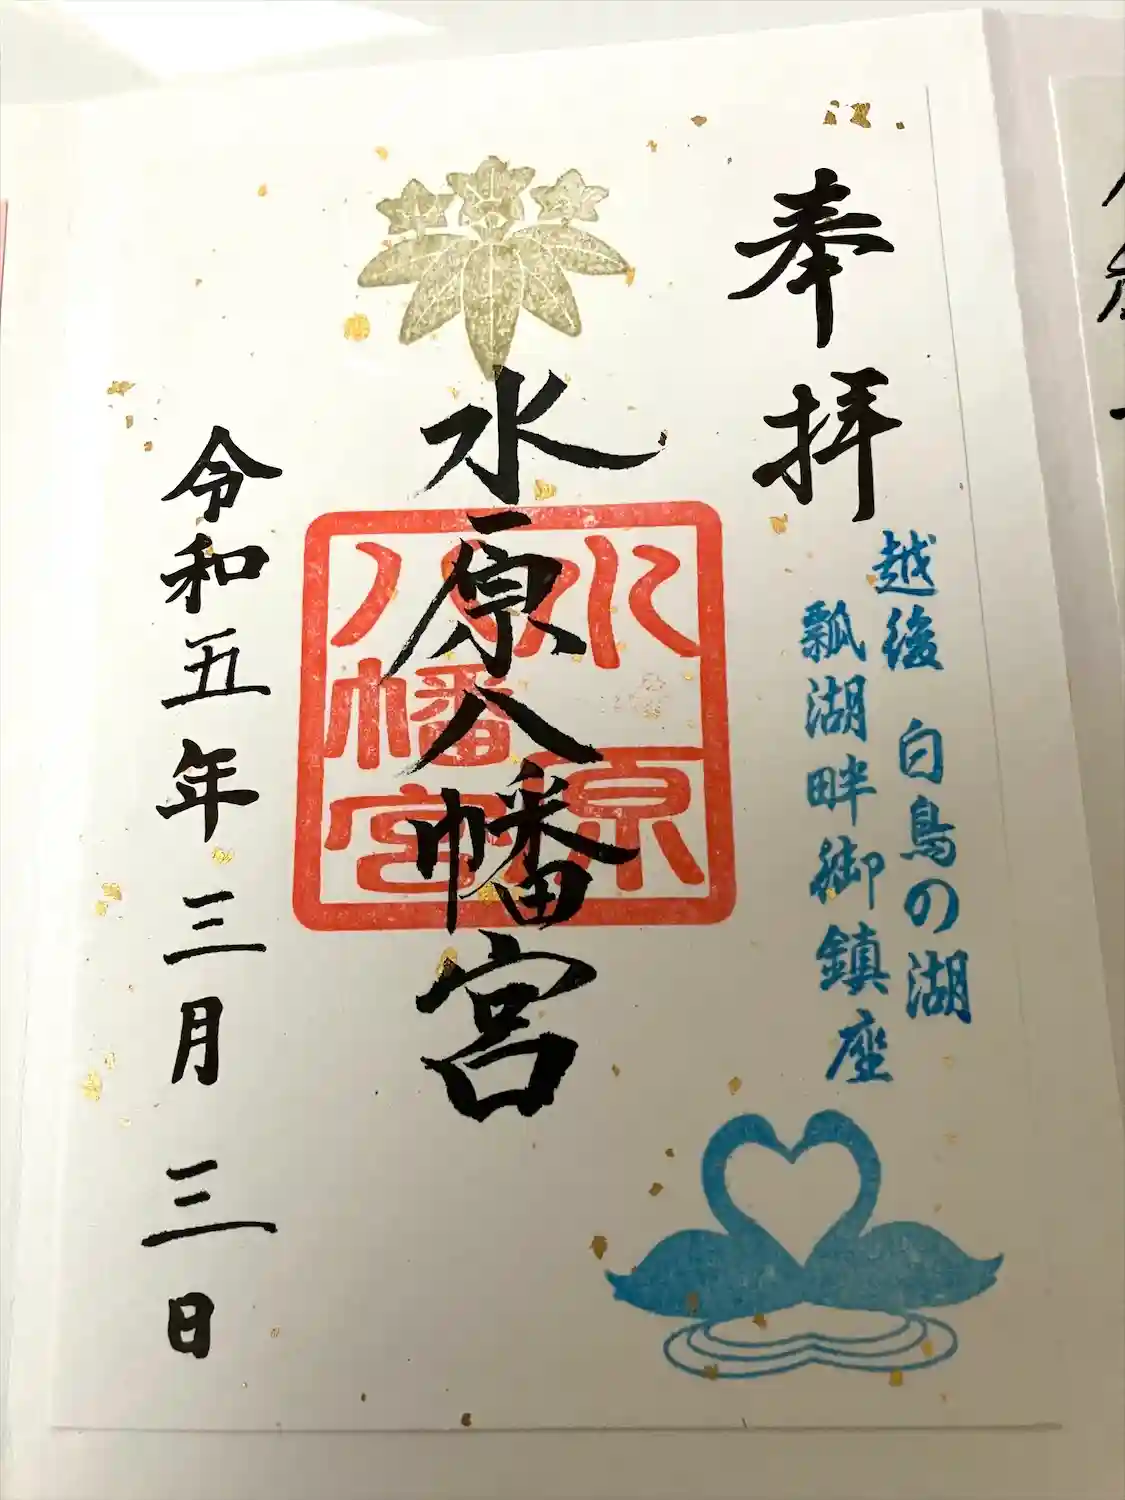 奉拝
越後 白鳥の湖
瓢湖畔御鎮座
水原八幡宮
水原
八幡宮
令和五年三月三日